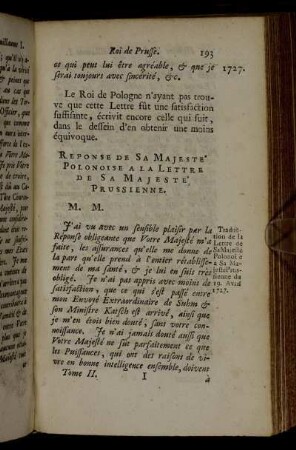 Roi de Prusse. 193
ce qui peut lui être agréable, & que je 1727.
serai toujours avec sincérité, &c.
Le Roi de Pologne n'ayant pas trou-
vé que cette Lettre fût une satisfaction
suffisante, écrivit encore celle qui suit,
dans le dessein d'en obtenir une moins
équivoque.
REPONSE DE SA MAJESTE'
POLONOISE A LA LETTRE
DE SA MAJESTE'
PRUSSIENNE.
M. M.
J'ai vu avec un sensible plaisir par la
Réponse obligeante que Votre Majesté m'a
faite, les assurances qu'elle me donne de
la part qu'elle prend à l'entier rétablisse-
ment de ma santé, & je lui en suis très
obligé. Je n'ai pas appris avec moins de
satisfaction, que ce qui s'est passé entre
mon Envoyé Extraordinaire de Suhm &
son Ministre Katsch est arrivé, ainsi que
je m'en étois bien douté, sans votre con-
noissance. Je n'ai jamais douté aussi que
Votre Majesté ne sût parfaitement ce que
les Puissances, qui ont des raisons de vi-
vre en bonne intelligence ensemble, doivent
Traduc-
tion de la
Lettre de
Sa Majesté
Polonoise
à Sa Ma-
jesté Prus-
sienne du
19. Avril
1727.
Tome II. I à